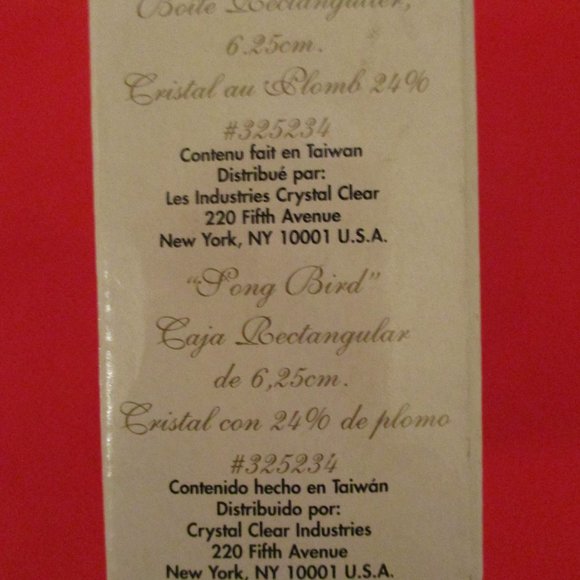 Boîte Rectangulier,
6.25cm.
Cristal au Plomb 24%
#325234
Contenu fait en Taiwan
Distribué par:
Les Industries Crystal Clear
220 Fifth Avenue
New York, NY 10001 U.S.A.
"Song Bird"
Caja Rectangular
de 6,25cm.
Cristal con 24% de plomo
#325234
Contenido hecho en Taiwán
Distribuido por:
Crystal Clear Industries
220 Fifth Avenue
New York, NY 10001 U.S.A.